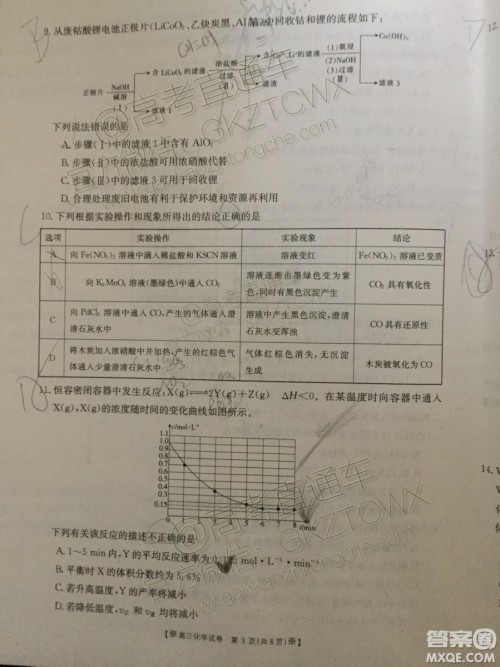 9. 从废钴酸锂电池正极片(LiCoO₂、乙炔炭黑、Al箔)中回收钴和锂的流程如下:
正极片 NaOH 碱溶 (Ⅰ)
含LiCoO₂的滤渣 浓盐酸 过滤 (Ⅱ)
滤液1
含Co²⁺、Li⁺的滤液
滤渣
(1)氨浸
(2)NaOH
(3)过滤
(Ⅲ)
Co(OH)₂
滤液3
下列说法错误的是
A. 步骤(Ⅰ)中的滤液1中含有AlO₂⁻
B. 步骤(Ⅱ)中的浓盐酸可用浓硝酸代替
C. 步骤(Ⅲ)中的滤液3可用于回收锂
D. 合理处理废旧电池有利于保护环境和资源再利用
10. 下列根据实验操作和现象所得出的结论正确的是
选项 实验操作 实验现象 结论
A 向Fe(NO₃)₂溶液中滴入稀盐酸和KSCN溶液 溶液变红 Fe(NO₃)₂溶液已变质
B 向K₂MnO₄溶液(墨绿色)中通入CO₂ 溶液逐渐由墨绿色变为紫色,同时有黑色沉淀产生 CO₂具有氧化性
C 向PdCl₂溶液中通入CO,产生的气体通入澄清石灰水中 溶液中产生黑色沉淀,澄清石灰水变浑浊 CO具有还原性
D 将木炭加入浓硝酸中并加热,产生的红棕色气体通入少量澄清石灰水中 气体红棕色消失,无沉淀生成 木炭被氧化为CO
11. 恒容密闭容器中发生反应:X(g)⇌2Y(g)+Z(g) ΔH<0。在某温度时向容器中通入
X(g),X(g)的浓度随时间的变化曲线如图所示。
c/mol·L⁻¹
1.1
1.0
0.9
0.8
0.7
0.6
0.5
0.4
0.3
0.2
0.1
0 1 2 3 4 5 6 7 8 t/min
下列有关该反应的描述不正确的是
A. 1~5 min内,Y的平均反应速率为 mol·L⁻¹·min⁻¹
B. 平衡时X的体积分数约为5.6%
C. 若升高温度,Y的产率将减小
D. 若降低温度,v正和v逆均将减小
【高三化学试卷 第3页(共6页)】
12
13.
14.
@高考直通车
GKZTCWX
gaokaozhitongche.com
答案圈
MXQE.COM